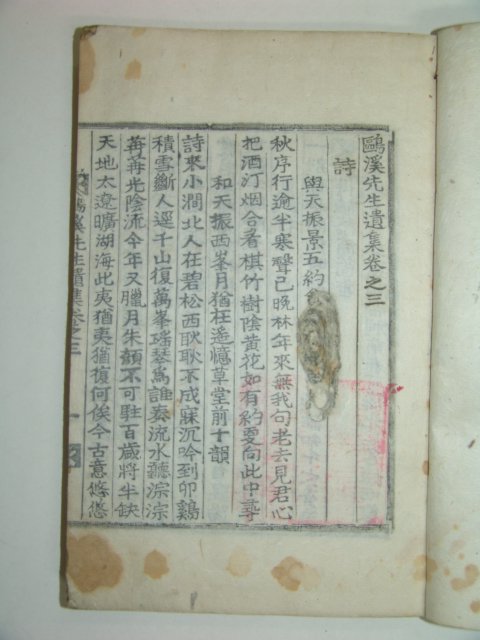 鷗溪先生遺集卷之三
詩
與天振景五約
秋序行逾半寒聲已晩林年來無我句老去見君心
把酒汀烟合看棋竹樹陰黃花如有約更向此中尋
和天振西峯月猶枉遙憶草堂前十韻
詩來小澗北人在碧松西耿耿不成寐沉吟到卯鷄
積雪斷人逕千山復萬峯瑤琴爲誰奏流水聽淙淙
苒苒光陰流今年又臘月朱顔不可駐百歲將半缺
天地太遼曠湖海此夷猶夷猶復何俟今古意悠悠
溪先生遺集卷之三 一